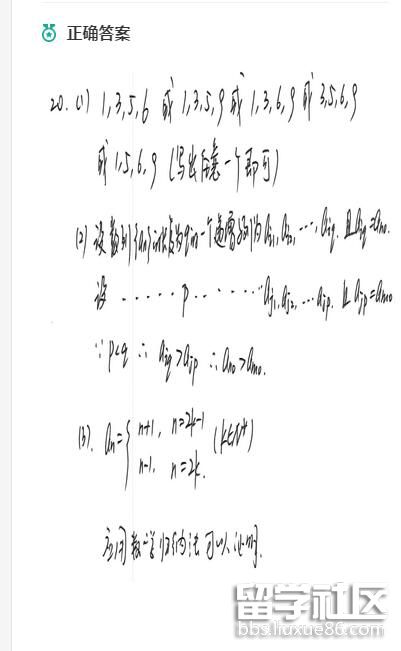 正确答案
20. (1) 1,3,5,6 或 1,3,5,9 或 1,3,6,9 或 3,5,6,9
或 1,5,6,9 (写出任意一个即可)
(2) 设数列{an}的长度为q的一个递增子列为ai1, ai2, ⋯, aiq. 且aiq=an0.
设 ⋯⋯ p ⋯⋯ aj1, aj2, ⋯ ajp. 且ajp=am0
∵ p<q ∴ aiq>ajp ∴ an0>am0.
(3). an={ n+1, n=2k-1 (k∈N*)
n-1, n=2k.
应用数学归纳法可以证明.
留学社区
bbs.liuxue86.com